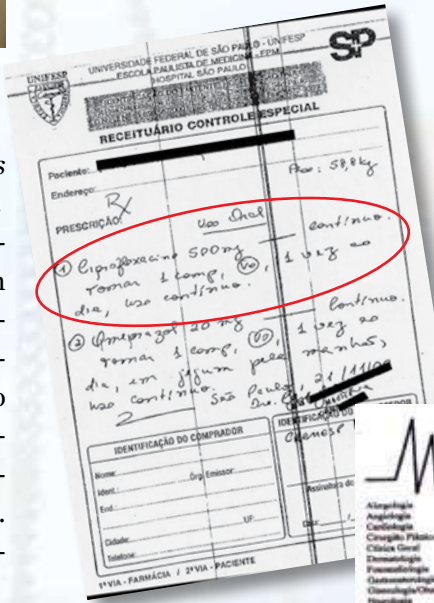 UNIFESP
UNIVERSIDADE FEDERAL DE SÃO PAULO - UNIFESP
ESCOLA PAULISTA DE MEDICINA - EPM
HOSPITAL SÃO PAULO
SP
RECEITUÁRIO CONTROLE ESPECIAL
Paciente:
Endereço:
Peso: 58,8kg
PRESCRIÇÃO:
Rx
Uso Oral
① Ciprofloxacino 500mg — contínuo.
Tomar 1 comp, (VO), 1 vez ao
dia, uso contínuo.
② Omeprazol 20 mg — Contínuo.
Tomar 1 comp, (VO), 1 vez ao
dia, em jejum pela manhã,
uso contínuo.
São Paulo, 21/11/
IDENTIFICAÇÃO DO COMPRADOR
Nome:
Ident.:
Órg. Emissor:
End.:
Cidade:
UF:
Telefone:
Assinatura do
1ª VIA - FARMÁCIA / 2ª VIA - PACIENTE
Alergologia
Angiologia
Cardiologia
Cirurgião Plástico
Clínica Geral
Dermatologia
Fonoaudiologia
Neurologia
s
n
o
.